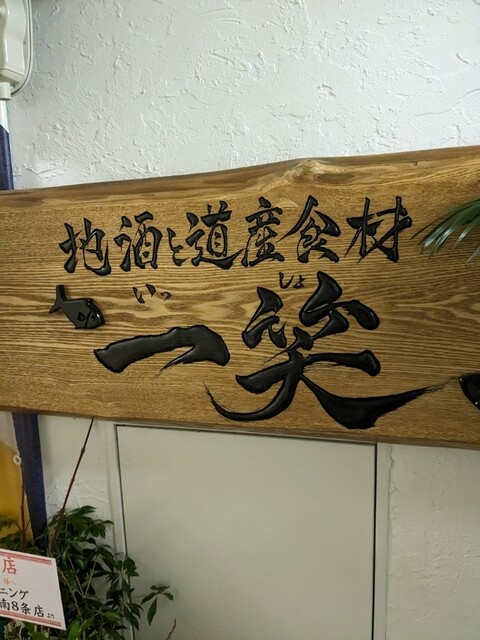 地酒と道産食材
いっ しょ
一笑
店
様へ
ニング
南8条店より